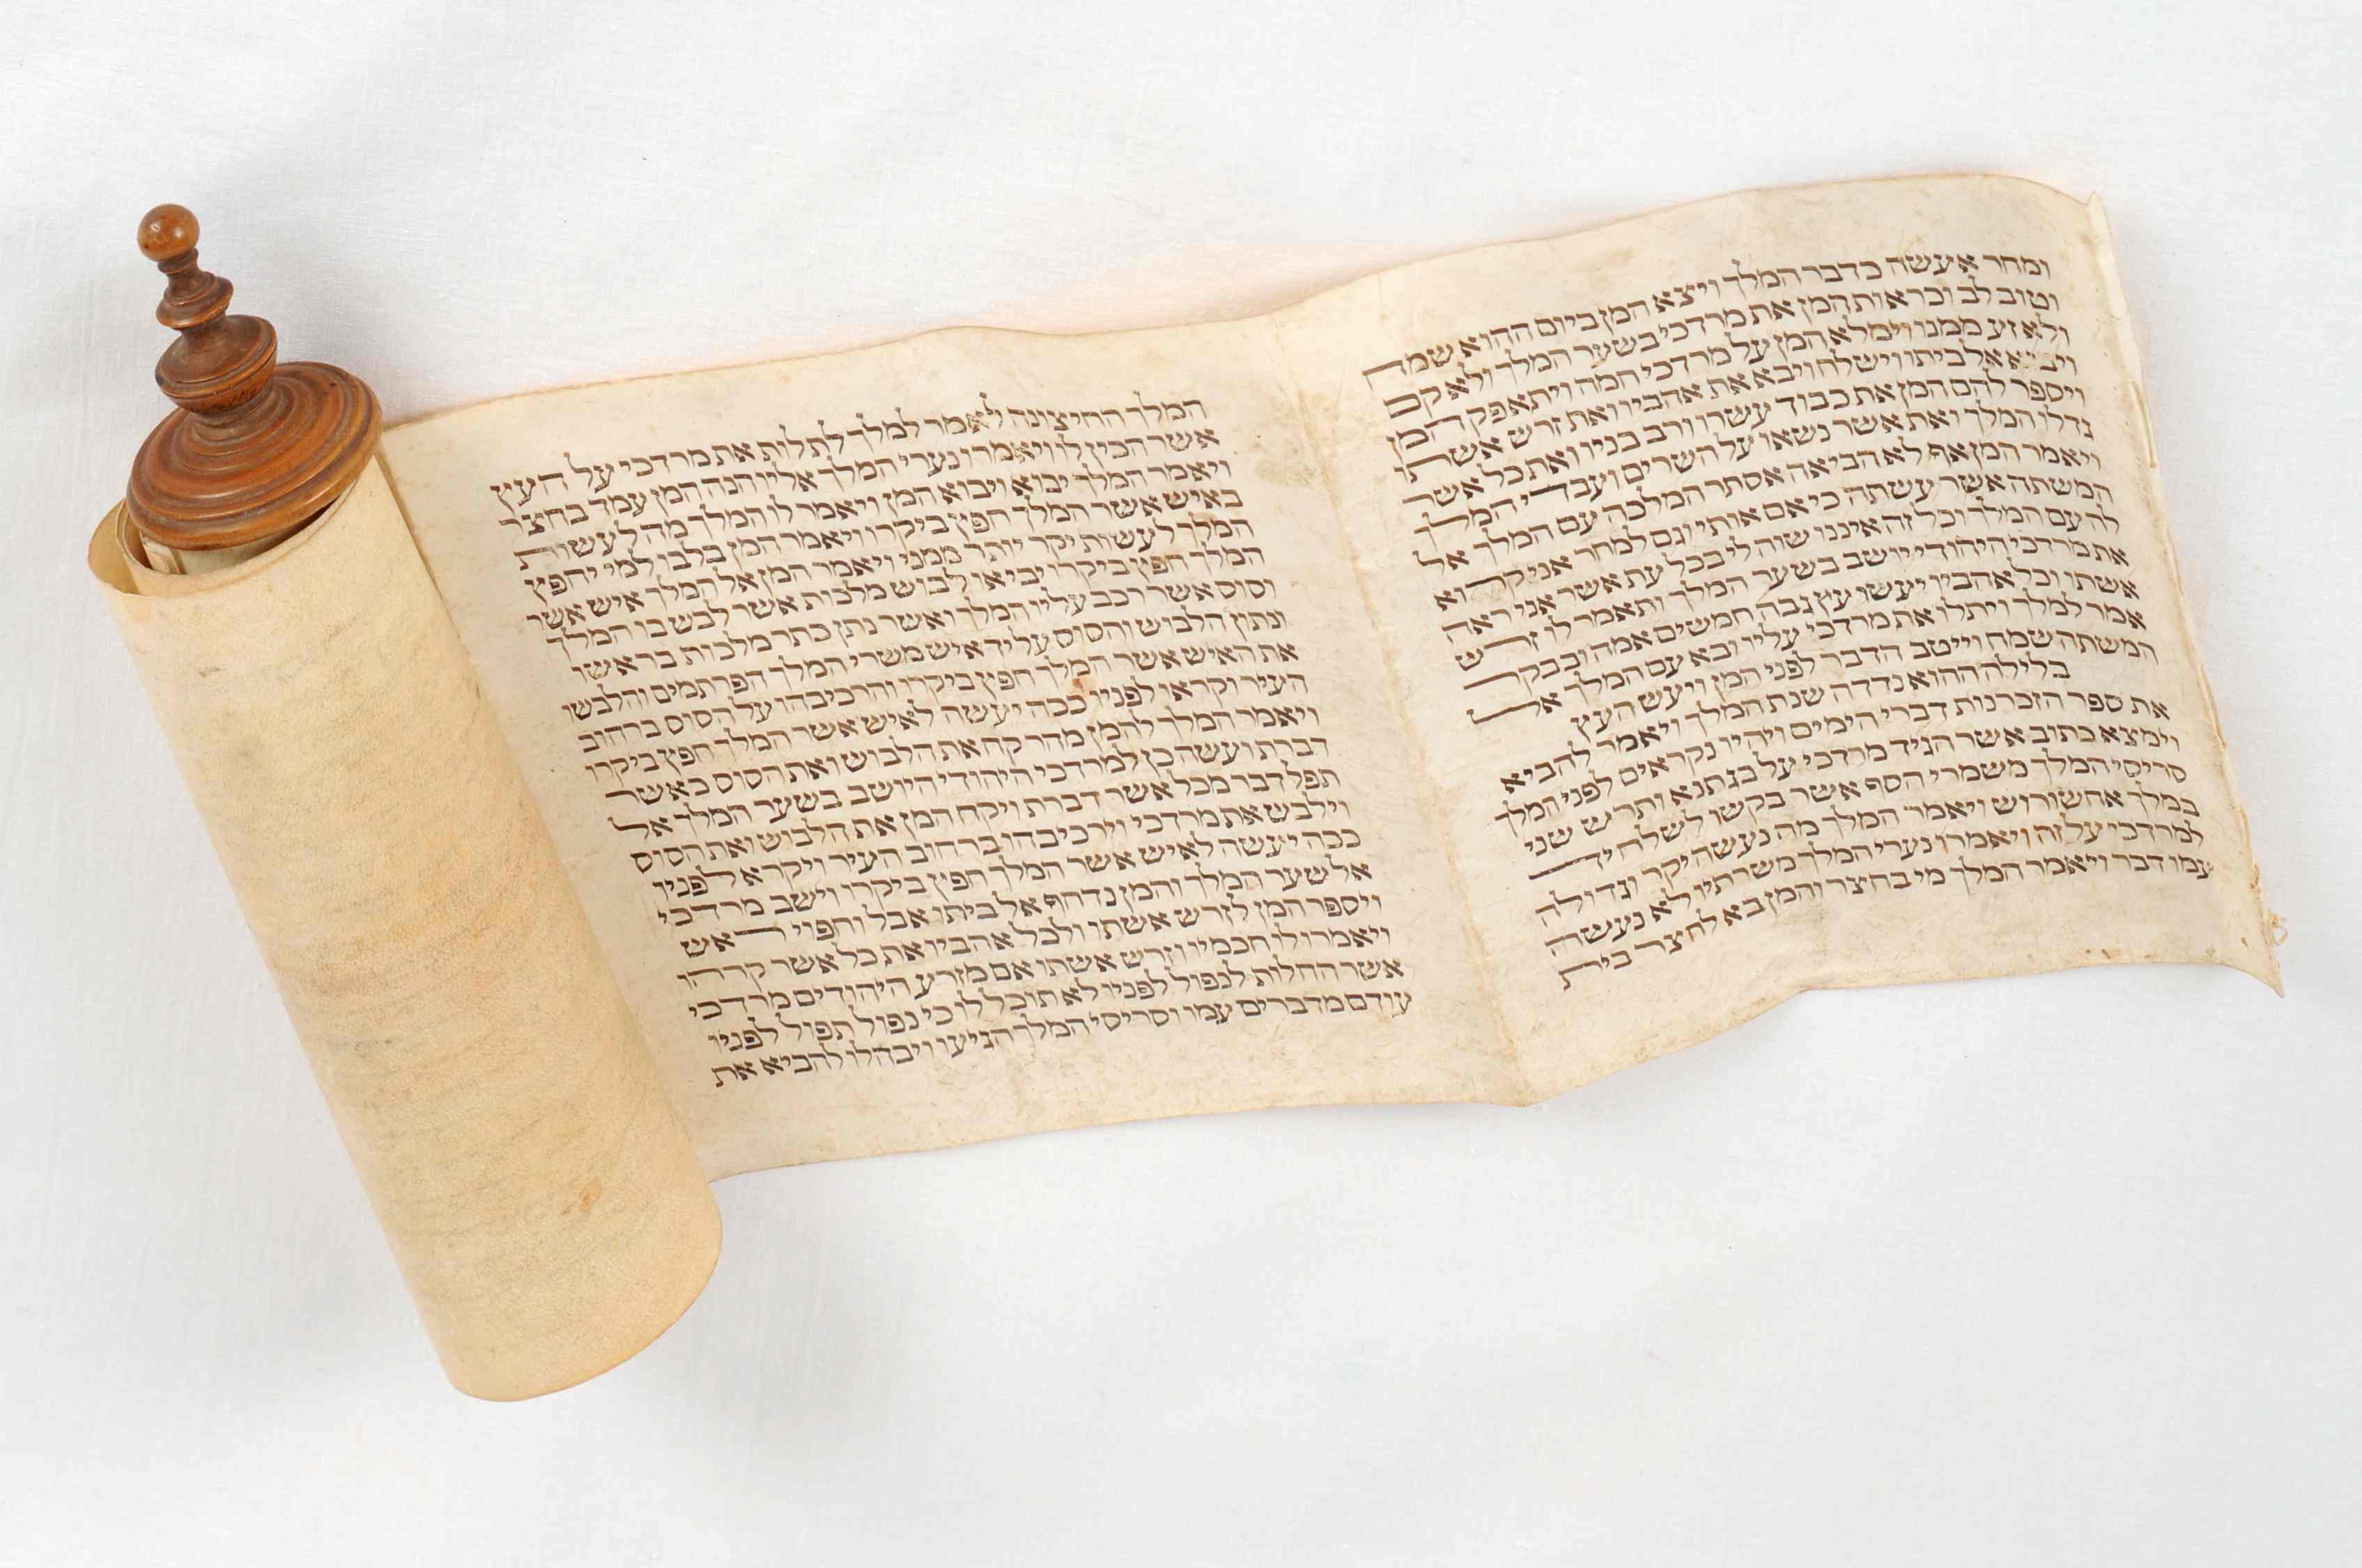 ומחר אעשה כדבר המלך ויצא המן ביום ההוא שמח
וטוב לב וכראות המן את מרדכי בשער המלך ולא קם
ולא זע ממנו וימלא המן על מרדכי חמה ויתאפק המן
ויבוא אל ביתו וישלח ויבא את אהביו ואת זרש אשתו
ויספר להם המן את כבוד עשרו ורב בניו ואת כל אשר
גדלו המלך ואת אשר נשאו על השרים ועבדי המלך
ויאמר המן אף לא הביאה אסתר המלכה עם המלך אל
המשתה אשר עשתה כי אם אותי וגם למחר אני קרוא
לה עם המלך וכל זה איננו שוה לי בכל עת אשר אני ראה
את מרדכי היהודי יושב בשער המלך ותאמר לו זרש
אשתו וכל אהביו יעשו עץ גבה חמשים אמה ובבקר
אמר למלך ויתלו את מרדכי עליו ובא עם המלך אל
המשתה שמח וייטב הדבר לפני המן ויעש העץ
בלילה ההוא נדדה שנת המלך ויאמר להביא
את ספר הזכרנות דברי הימים ויהיו נקראים לפני המלך
וימצא כתוב אשר הגיד מרדכי על בגתנא ותרש שני
סריסי המלך משמרי הסף אשר בקשו לשלח יד
במלך אחשורוש ויאמר המלך מה נעשה יקר וגדולה
למרדכי על זה ויאמרו נערי המלך משרתיו לא נעשה
עמו דבר ויאמר המלך מי בחצר והמן בא לחצר בית
המלך החיצונה לאמר למלך לתלות את מרדכי על העץ
אשר הכין לו ויאמרו נערי המלך אליו הנה המן עמד בחצר
ויאמר המלך יבוא ויבוא המן ויאמר לו המלך מה לעשות
באיש אשר המלך חפץ ביקרו ויאמר המן בלבו למי יחפץ
המלך לעשות יקר יותר ממני ויאמר המן אל המלך איש אשר
המלך חפץ ביקרו יביאו לבוש מלכות אשר לבש בו המלך
וסוס אשר רכב עליו המלך ואשר נתן כתר מלכות בראשו
ונתון הלבוש והסוס על יד איש משרי המלך הפרתמים והלבשו
את האיש אשר המלך חפץ ביקרו והרכיבהו על הסוס ברחוב
העיר וקראו לפניו ככה יעשה לאיש אשר המלך חפץ ביקרו
ויאמר המלך להמן מהר קח את הלבוש ואת הסוס כאשר
דברת ועשה כן למרדכי היהודי היושב בשער המלך אל
תפל דבר מכל אשר דברת ויקח המן את הלבוש ואת הסוס
וילבש את מרדכי וירכיבהו ברחוב העיר ויקרא לפניו
ככה יעשה לאיש אשר המלך חפץ ביקרו וישב מרדכי
אל שער המלך והמן נדחף אל ביתו אבל וחפוי ראש
ויספר המן לזרש אשתו ולכל אהביו את כל אשר קרהו
ויאמרו לו חכמיו וזרש אשתו אם מזרע היהודים מרדכי
אשר החלות לנפול לפניו לא תוכל לו כי נפול תפול לפניו
עודם מדברים עמו וסריסי המלך הגיעו ויבהלו להביא את